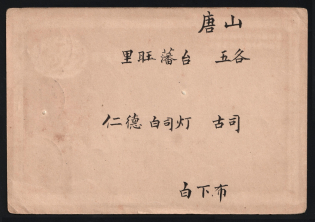 唐山
里旺藩台 五各
仁德 白司灯 古司
白下布